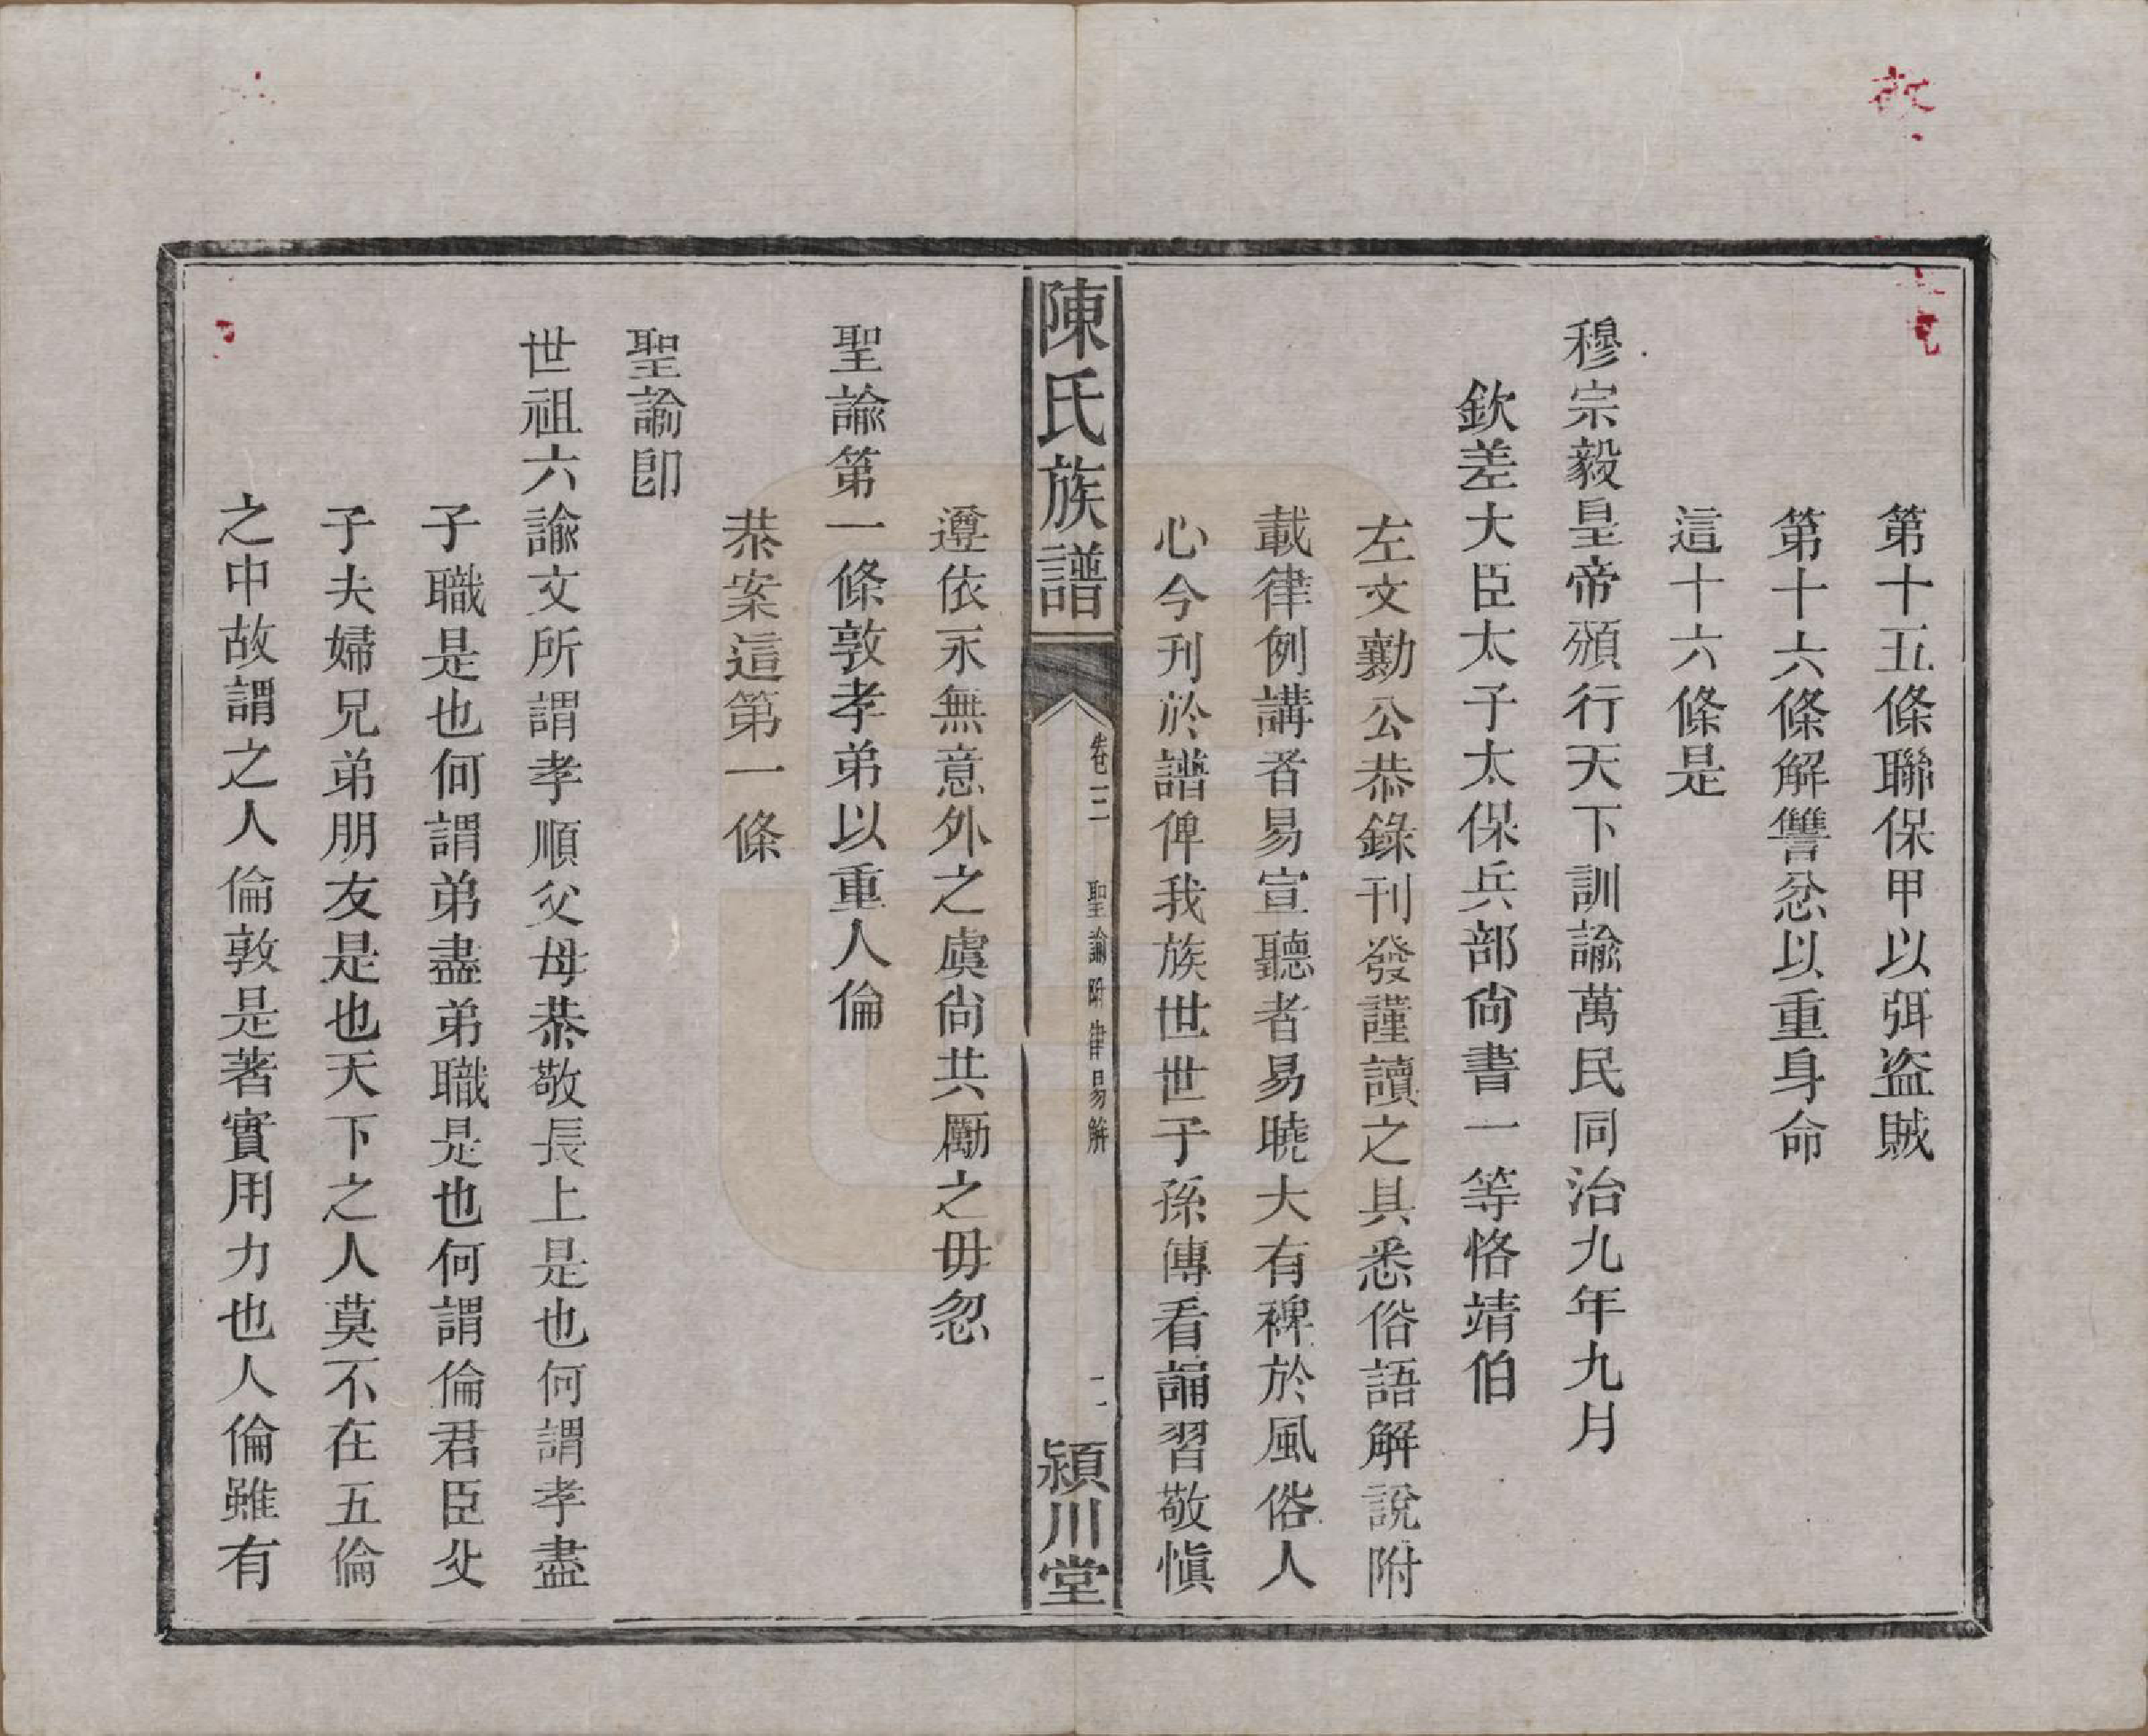 第十五條聯保甲以弭盜賊
第十六條解讐忿以重身命
這十六條是
穆宗毅皇帝頒行天下訓諭萬民同治九年九月
欽差大臣太子太保兵部尙書一等恪靖伯
左文勷公恭錄刊發謹讀之具悉俗語解說附
載律例講者易宣聽者易曉大有裨於風俗人
心今刊於譜俾我族世世子孫傳看誦習敬愼
陳氏族譜
卷三 聖諭附律易解 二
潁川堂
遵依永無意外之虞尙共勵之毋忽
聖諭第一條敦孝弟以重人倫
恭案這第一條
聖諭卽
世祖六諭文所謂孝順父母恭敬長上是也何謂孝盡
子職是也何謂弟盡弟職是也何謂倫君臣父
子夫婦兄弟朋友是也天下之人莫不在五倫
之中故謂之人倫敦是著實用力也人倫雖有